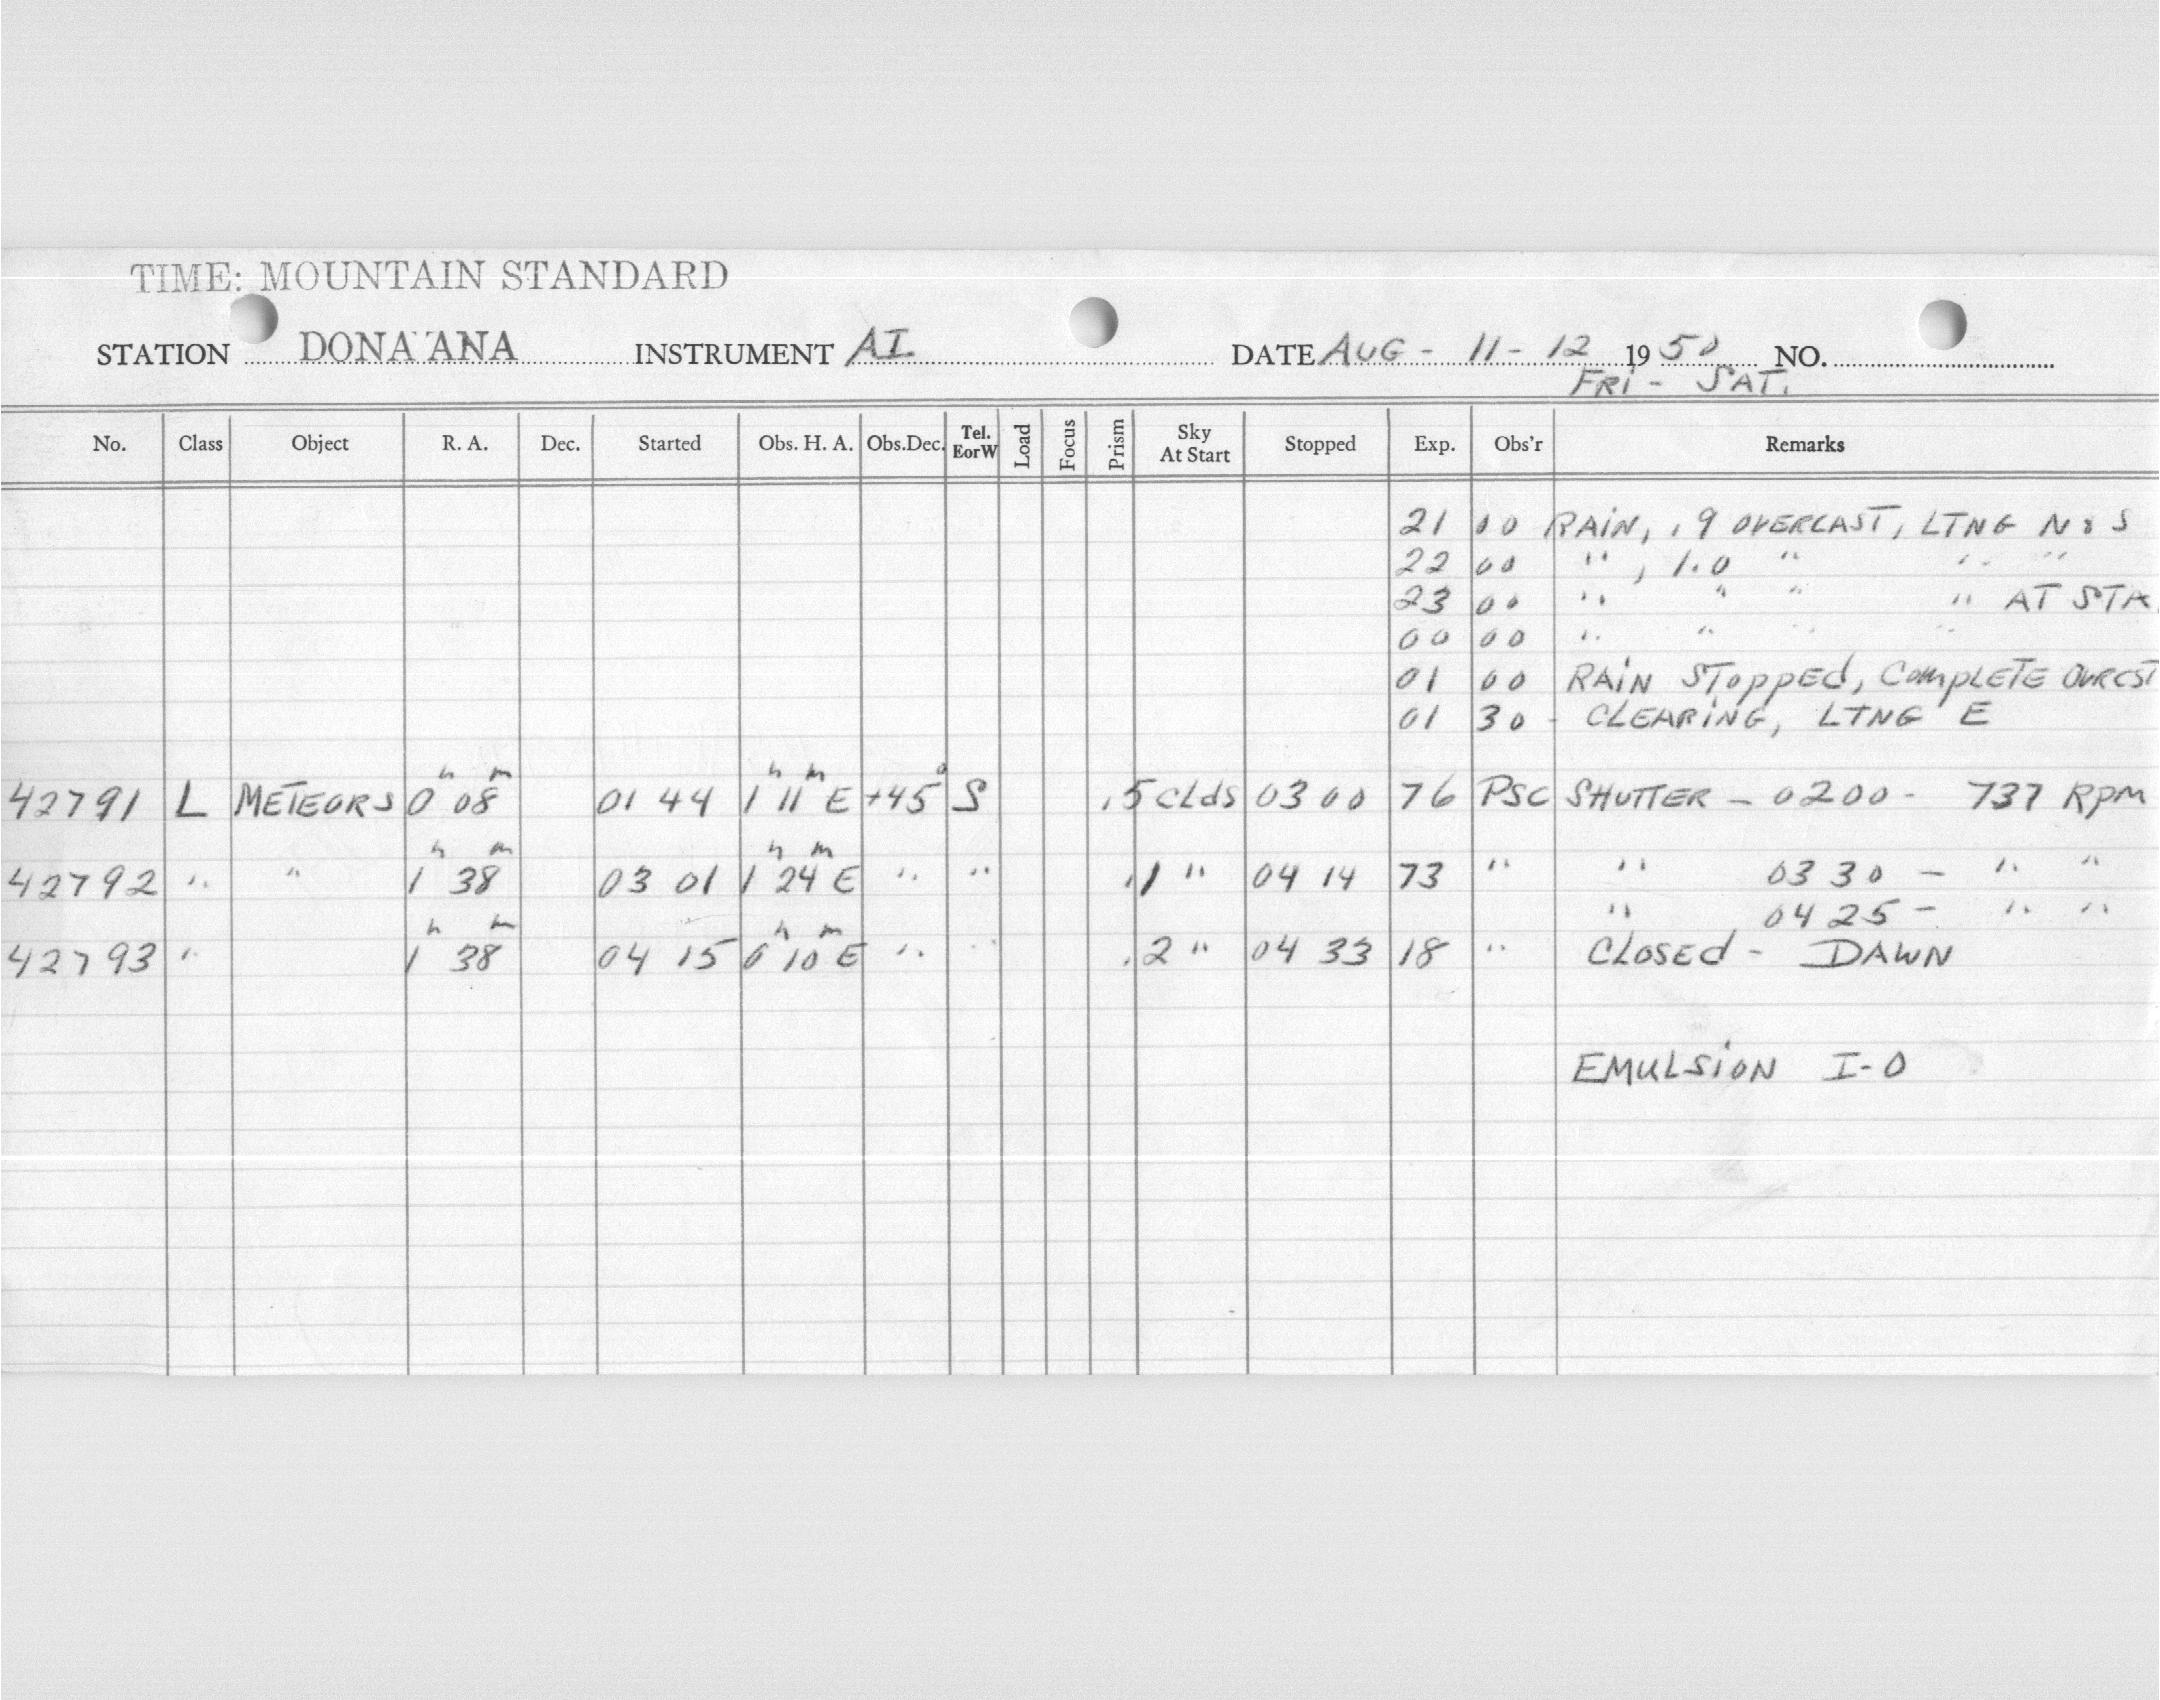 TIME: MOUNTAIN STANDARD
STATION DONA ANA INSTRUMENT AI DATE AUG - 11 - 12 1950 NO.
FRI - SAT.
No. Class Object R. A. Dec. Started Obs. H. A. Obs.Dec. Tel. EorW Load Focus Prism Sky At Start Stopped Exp. Obs'r Remarks
21 00 RAIN, .9 OVERCAST, LTNG N & S
22 00 " , 1.0 " " "
23 00 " " " " AT STA.
00 00 " " " "
01 00 RAIN STOPPED, COMPLETE OVRCST
01 30 - CLEARING, LTNG E
42791 L METEORS 0h 08m 01 44 1h 11m E +45° S .5 CLdS 03 00 76 PSC SHUTTER - 0200 - 737 RPM
42792 " " 1h 38m 03 01 1h 24m E " " .1 " 04 14 73 " " 03 30 - " "
" 04 25 - " "
42793 " 1h 38m 04 15 0h 10m E " " .2 " 04 33 18 " CLOSED - DAWN
EMULSION I-O